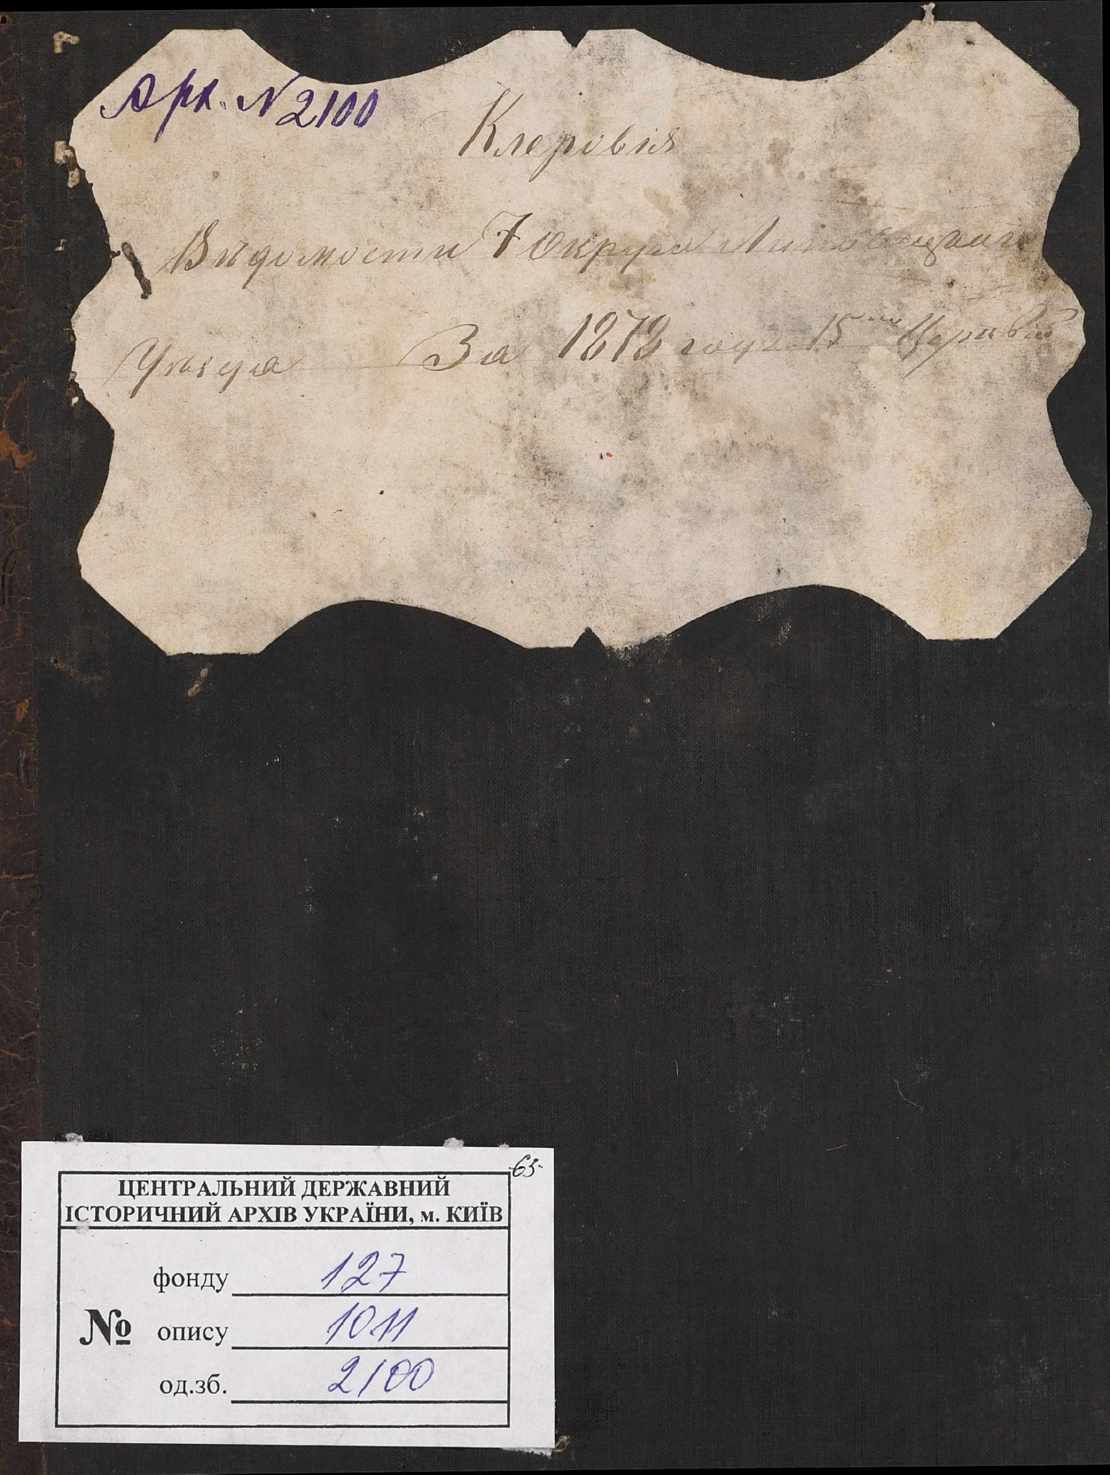 Арх. № 2100
Клировія
Вѣдомости 7 округа Липовецкаго
Уѣзда За 1872 годъ 15 Церквей
63
ЦЕНТРАЛЬНИЙ ДЕРЖАВНИЙ
ІСТОРИЧНИЙ АРХІВ УКРАЇНИ, м. КИЇВ
фонду 127
№ опису 1011
од.зб. 2100